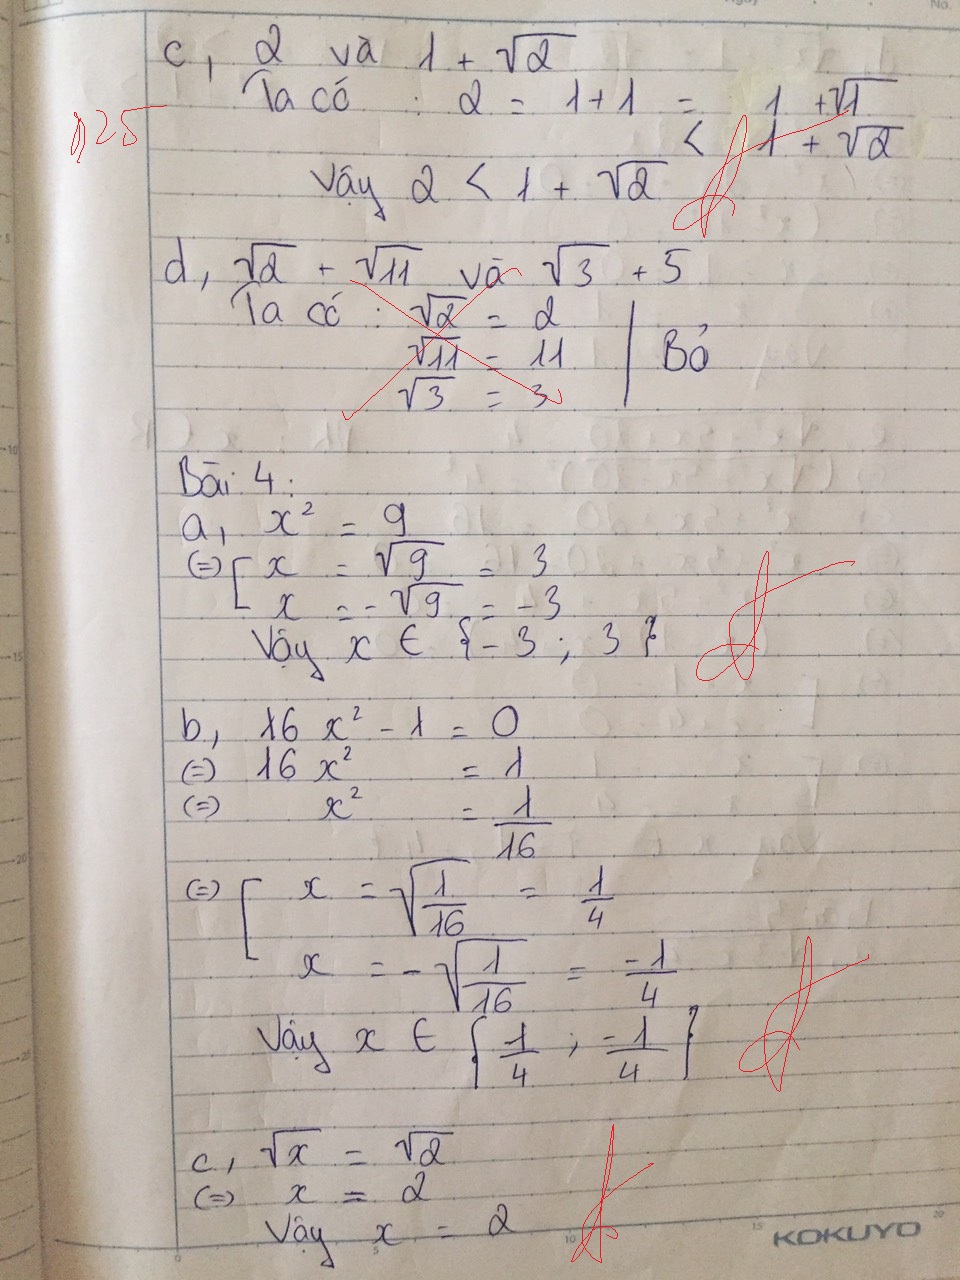 c, 2 và 1 + √2
Ta có : 2 = 1+1 = 1 +√1
< 1 + √2
Vậy 2 < 1 + √2
d, √2 + √11 và √3 + 5
Ta có : √2 = 2
√11 = 11 | Bỏ
√3 = 3
Bài 4:
a, x² = 9
(=) [ x = √9 = 3
x = -√9 = -3
Vậy x ∈ {-3 ; 3}
b, 16 x² - 1 = 0
(=) 16 x² = 1
(=) x² = 1/16
(=) [ x = √(1/16) = 1/4
x = -√(1/16) = -1/4
Vậy x ∈ {1/4 ; -1/4}
c, √x = √2
(=) x = 2
Vậy x = 2
KOKUYO